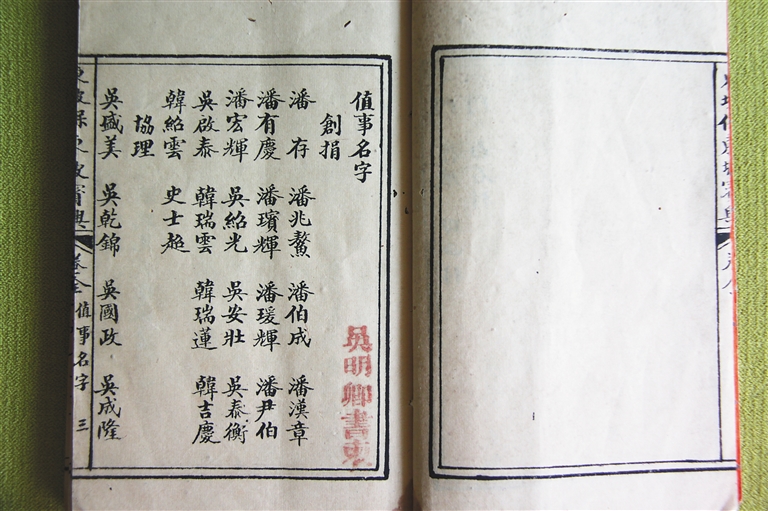 值事名字
創捐
潘存 潘兆鰲 潘伯成 潘漢章
潘有慶 潘璸輝 潘瑗輝 潘尹伯
潘宏輝 吳紹光 吳安壯 吳泰衡
吳啟泰 韓瑞雲 韓瑞蓮 韓吉慶
韓紹雲 史士超
協理
吳盛美 吳乾錦 吳國政 吳成隆
東坡保東坡賓興 卷全 值事名字 三
吳明卿書